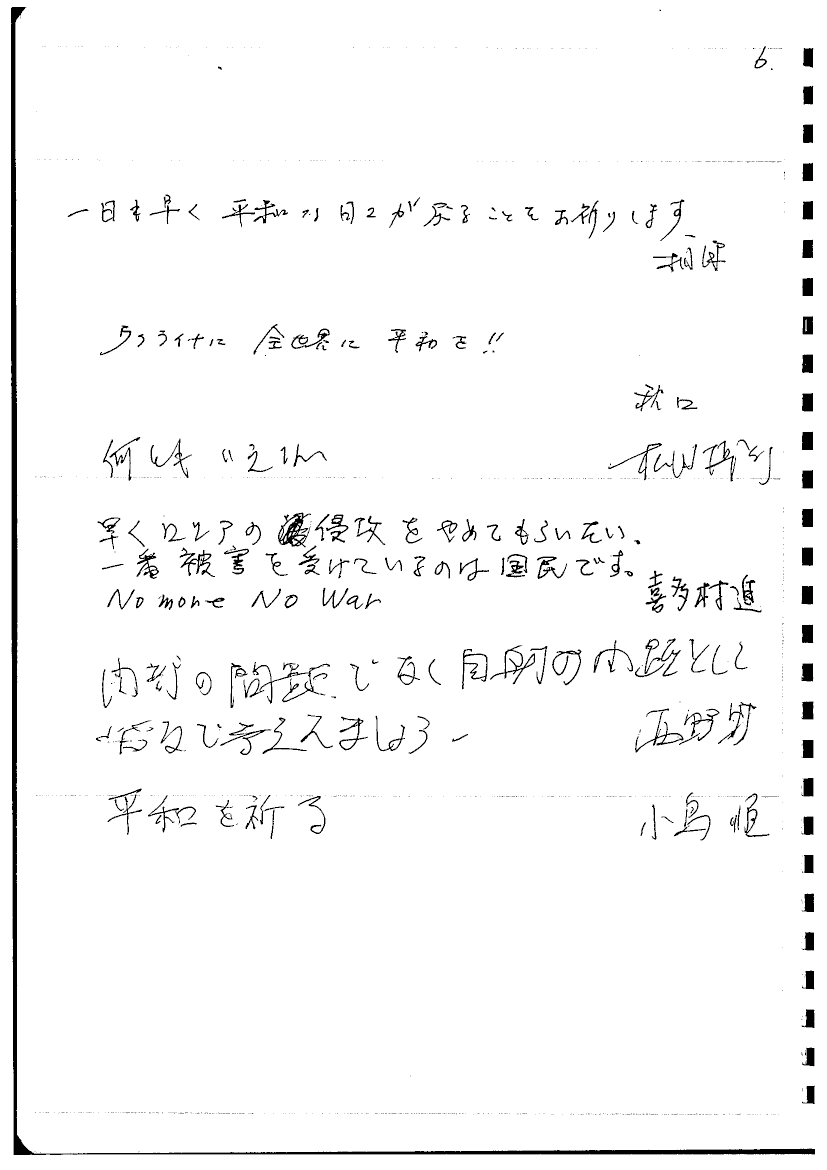 6.
一日も早く 平和な日々が戻ることをお祈りします
ウクライナに 全世界に 平和を!!
秋口
何も いえない
早くロシアの侵攻をやめてもらいたい.
一番被害を受けているのは国民です。
No more No War
喜多村進
の問題でなく自分の問題として
考えましょう
西野
平和を祈る
小島 恒